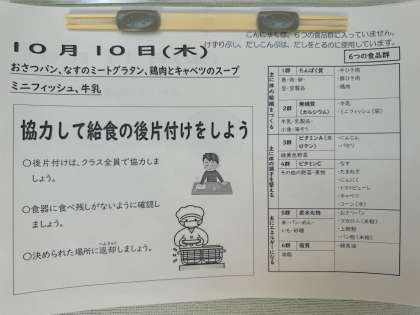 こんにゃくは、6つの食品群に入っていません。
けずりぶし、だしこんぶは、だしをとるのに使用しています。
10月10日(木)
おさつパン、なすのミートグラタン、鶏肉とキャベツのスープ
ミニフィッシュ、牛乳
協力して給食の後片付けをしよう
○後片付けは、クラス全員で協力しま
しょう。
○食器に食べ残しがないように確認し
ましょう。
○決められた場所に返却しましょう。
へんきゃく
6つの食品群
主に体の組織をつくる
1群 たんぱく質
魚・肉・卵・
豆・豆製品
・牛ひき肉
・豚ひき肉
・鶏肉
2群 無機質
(カルシウム)
牛乳・乳製品・
小魚・海そう
・牛乳
・ミニフィッシュ(袋)
主に体の調子を整える
3群 ビタミンA(カロテン)
緑黄色野菜
・にんじん
・パセリ
4群 ビタミンC
その他の野菜・果物
・なす
・たまねぎ
・にんにく
・トマトピューレ
・キャベツ
・コーン(冷)
主にエネルギーになる
5群 炭水化物
米・パン・めん・
いも・砂糖
・おさつパン
・マカロニ(米粉)
・上新粉
・パン粉(米粉)
6群 脂質
油脂
・綿実油